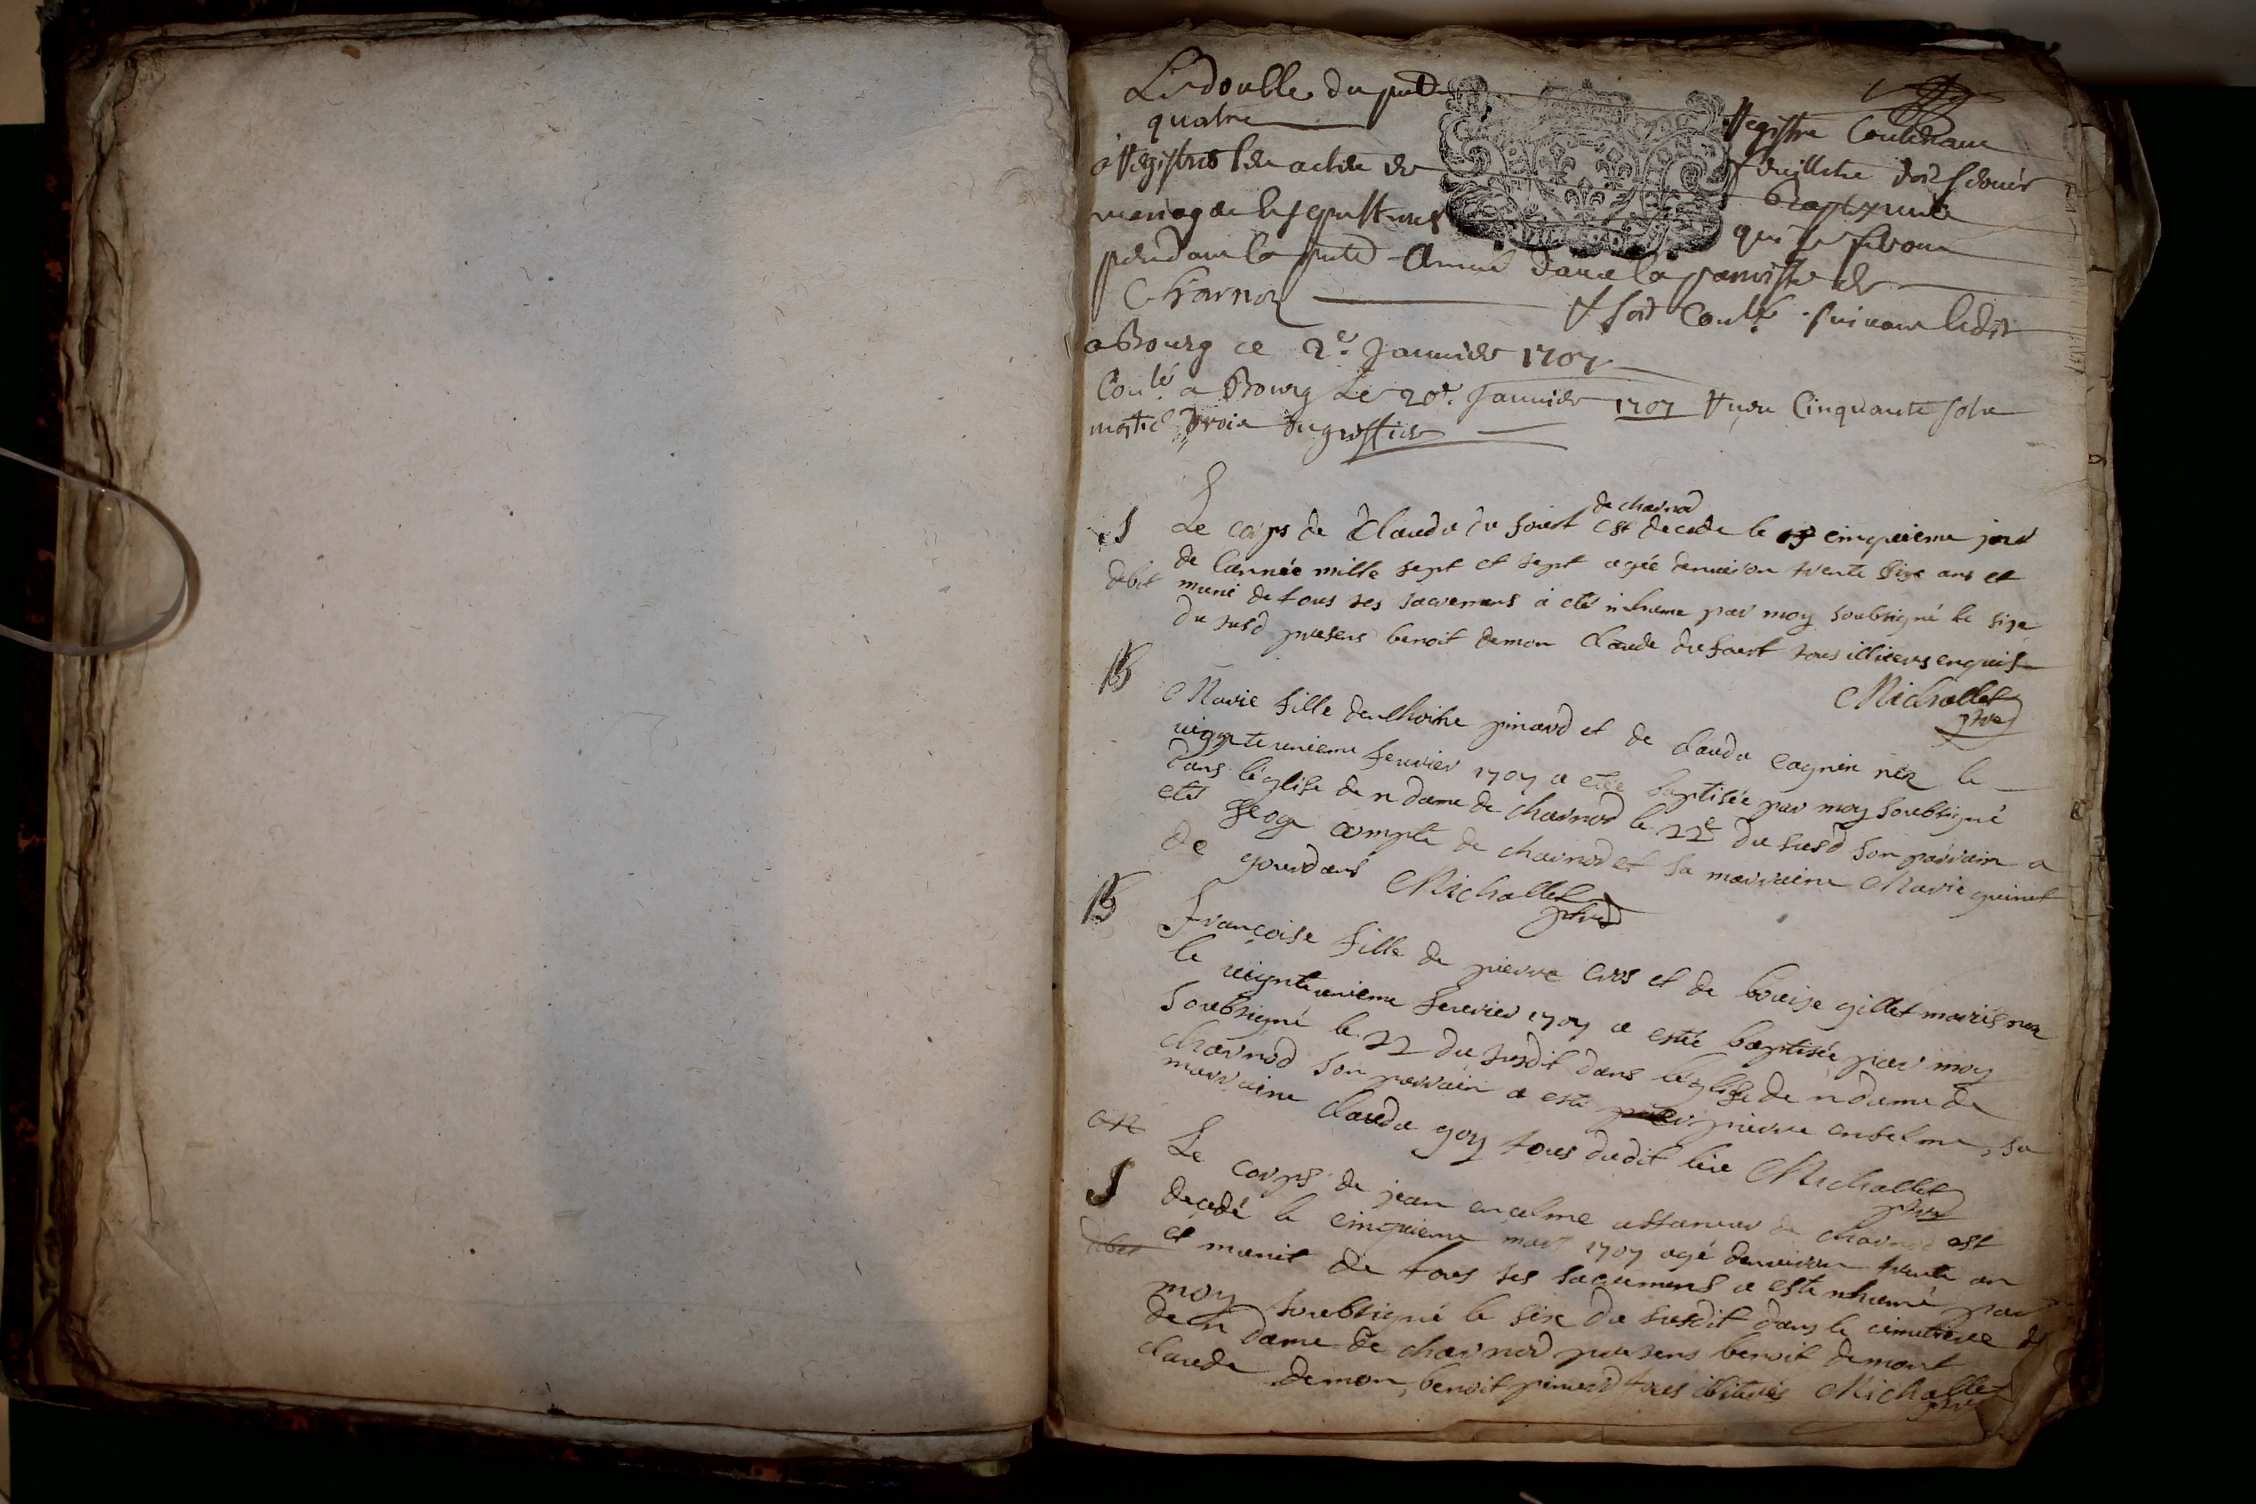 Le double du put
Registre Contenant
quatre
feuillets doit servir
a Registres les actes de
Baptesmes
mariages les sepultures
qui se feront
pendant la pnte Année dans la paroisse de
Charnoz
& soit Conllé suivant ledit
a Bourg ce 2e. Janvier 1707
Conlé a Bourg Le 20e. Janvier 1707 Receu Cinquante sols
droits du greffier
S
de charnod
Le corps de Claude du foiert est decede le cinquieme jour
de lannée mille sept et sept agée denviron trente six ans et
debit
muni de tous ses sacremens à eté inhume par moy soubsigné le six
du susd presens benoit demon claude dufoiert tous illiterés enquis
Michallet
ptre
B
Marie fille danthoine pinard et de clauda cagnin nez le
vigntunieme fevrier 1707 a etée baptisée par moy soubsigné
dans léglise de n dame de charnod le 22e du susd son parrain a
eté compte de charnod et sa marraine Marie guinet
de gourdans Michallet
ptre
B
Françoise fille de pierre cros et de gillet mariés nez
le vigntunieme fevrier 1707 a estée baptisée par moy
soubsigné le 22 du susdit dans léglise de n dame de
charnod son parrain a esté pierre enselme, sa
marraine clauda goy tous dudit lieu Michallet
ptre
S
Le corps de jean encelme de charnod est
decedé le cinquieme mars 1707 agé denviron trente an
et munit de tous ses sacremens a este nhumé par
moy soubsigné le six du susdit dans le cimetiere de
de n dame de charnod presens benoit demont
claude demon, benoit pinard tous illiterés Michallet
ptre